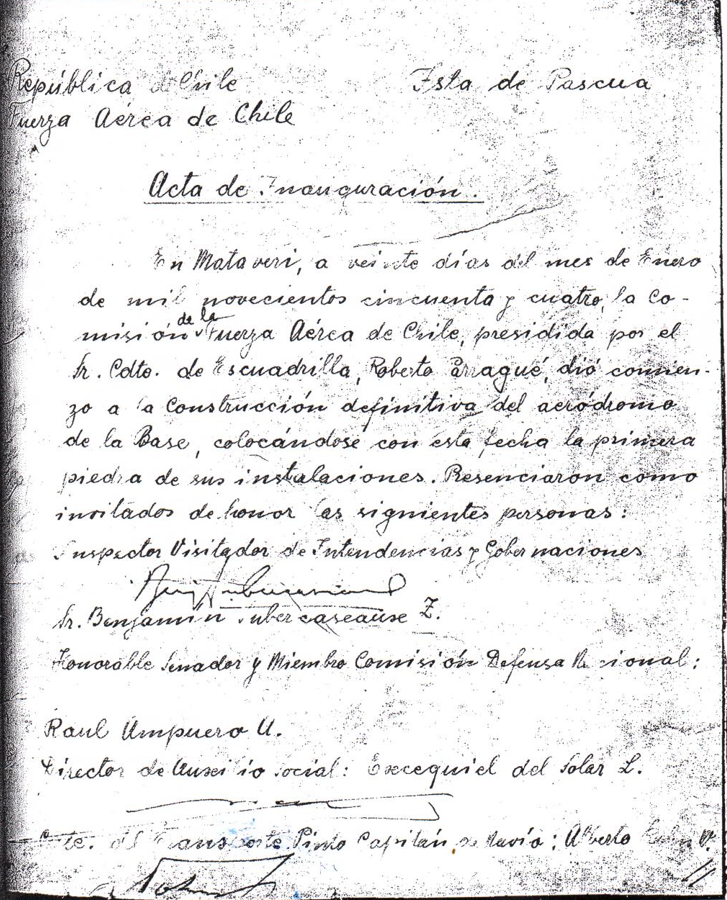 República de Chile Isla de Pascua
Fuerza Aérea de Chile
Acta de Inauguración.
En Mataveri, a veinte días del mes de Enero
de mil novecientos cincuenta y cuatro, la Co-
misión de la Fuerza Aérea de Chile, presidida por el
Sr. Cdte. de Escuadrilla, Roberto Parragué, dió comien-
zo a la Construcción definitiva del aeródromo
de la Base, colocándose con esta fecha la primera
piedra de sus instalaciones. Presenciaron como
invitados de honor las siguientes personas:
Inspector Visitador de Intendencias y Gobernaciones
Sr. Benjamín Subercaseaux Z.
Honorable Senador y Miembro Comisión Defensa Nacional:
Raul Ampuero U.
Director de Auxilio Social: Execequiel del Solar L.
Cdte. del Transporte Pinto Capitán de Navío: Alberto